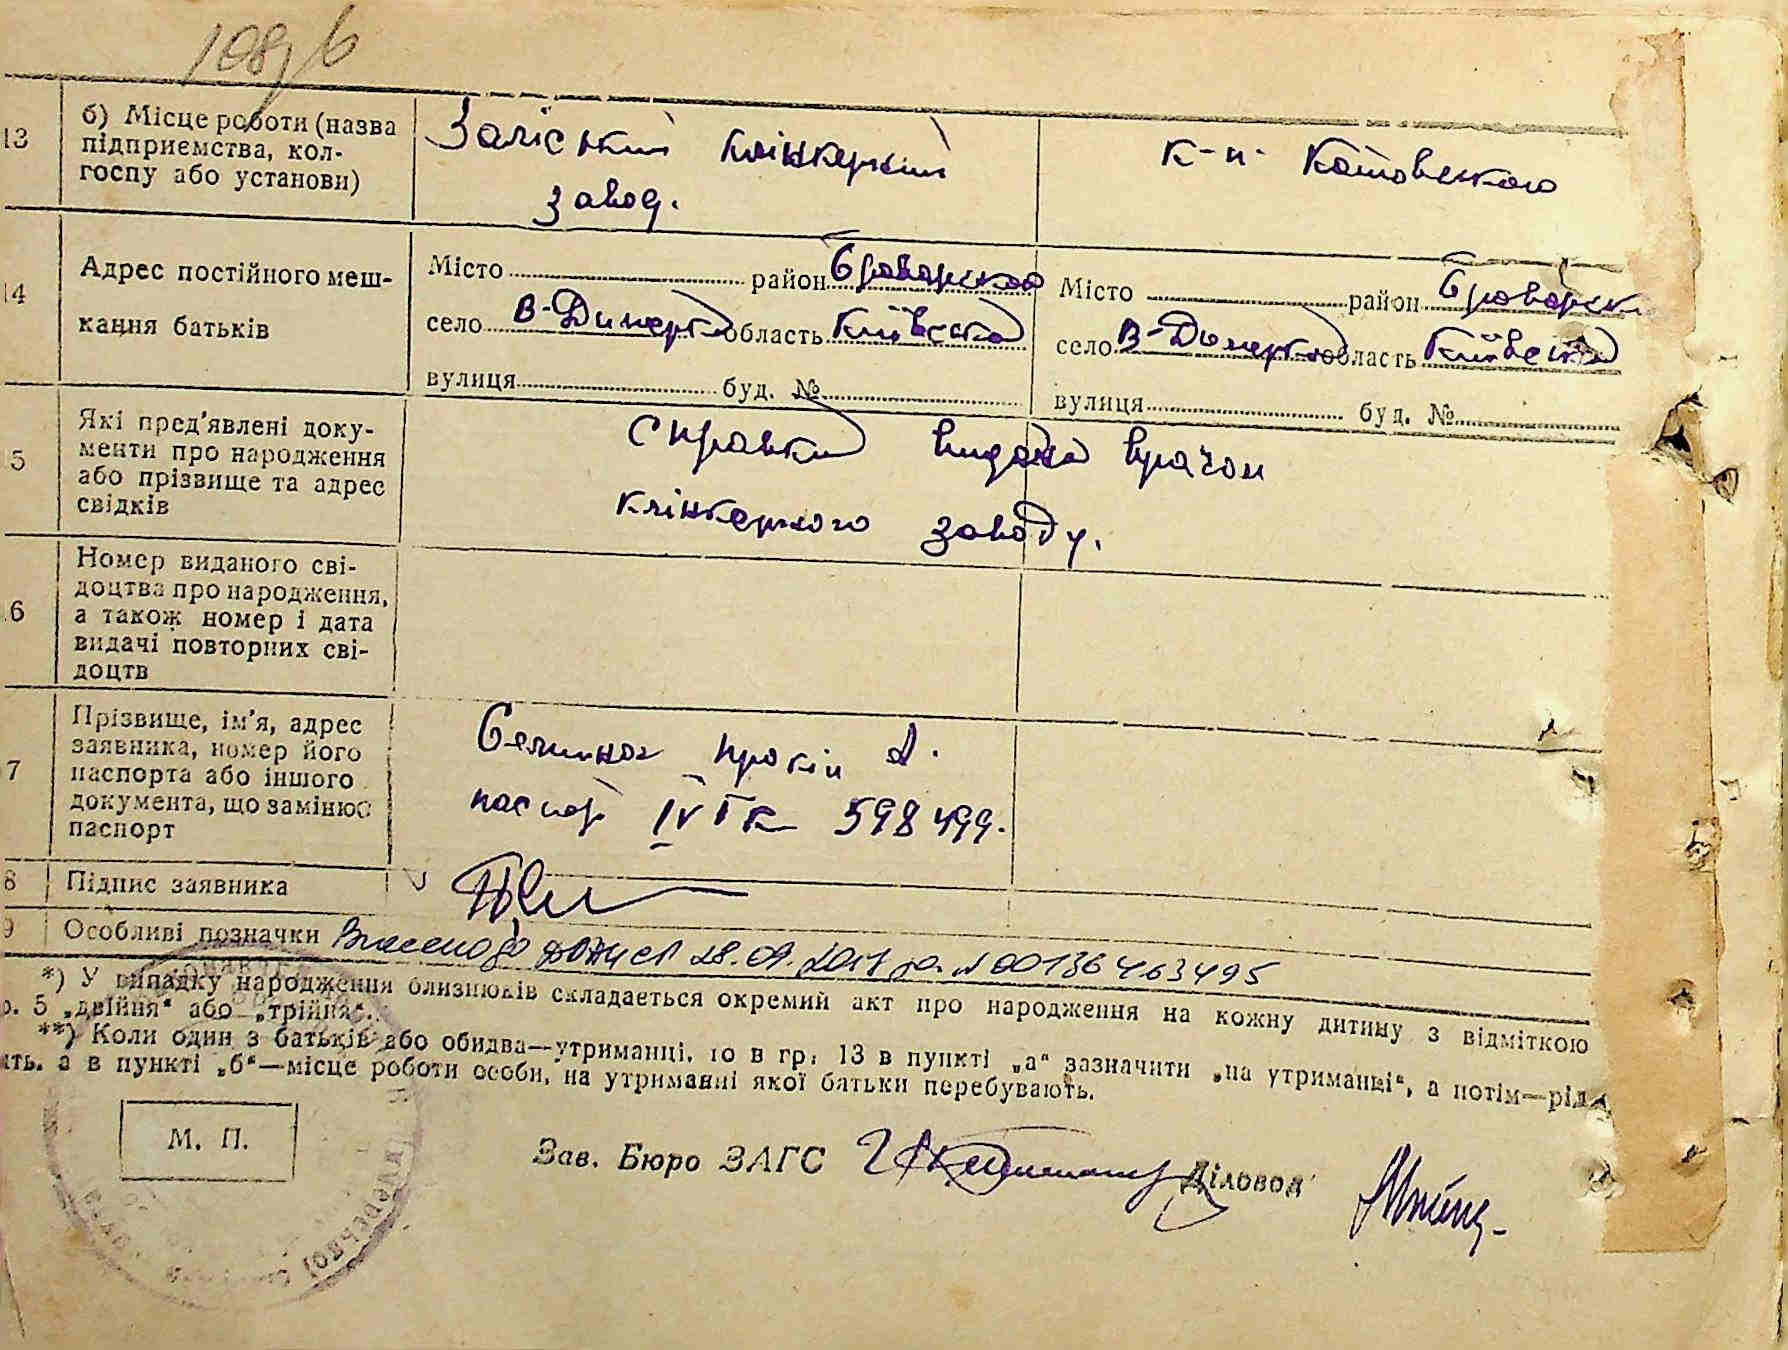 108
13 б) Місце роботи (назва підприємства, колгоспу або установи)
Заліський клінкерний завод.
к-п Котовского
14 Адрес постійного мешкання батьків
Місто район Броварской
село В-Димерка область Київська
вулиця буд. №
Місто район Броварск
село В-Димерка область Київська
вулиця буд. №
5 Які пред'явлені документи про народження або прізвище та адрес свідків
справка видана врачом
клінкерного заводу.
6 Номер виданого свідоцтва про народження, а також номер і дата видачі повторних свідоцтв
7 Прізвище, ім'я, адрес заявника, номер його паспорта або іншого документа, що замінює паспорт
Прокіп
паспорт IV ТК 598499.
8 Підпис заявника
9 Особливі позначки Внесено до 28.09.2017 за №00136463495
*) У випадку народження близнюків складається окремий акт про народження на кожну дитину з відміткою
р. 5 „двійня“ або „трійня“.
**) Коли один з батьків або обидва—утриманці, то в гр. 13 в пункті „а“ зазначити „на утриманні“, а потім—рід
ять, а в пункті „б“—місце роботи особи, на утриманні якої батьки перебувають.
М. П.
Зав. Бюро ЗАГС Діловод